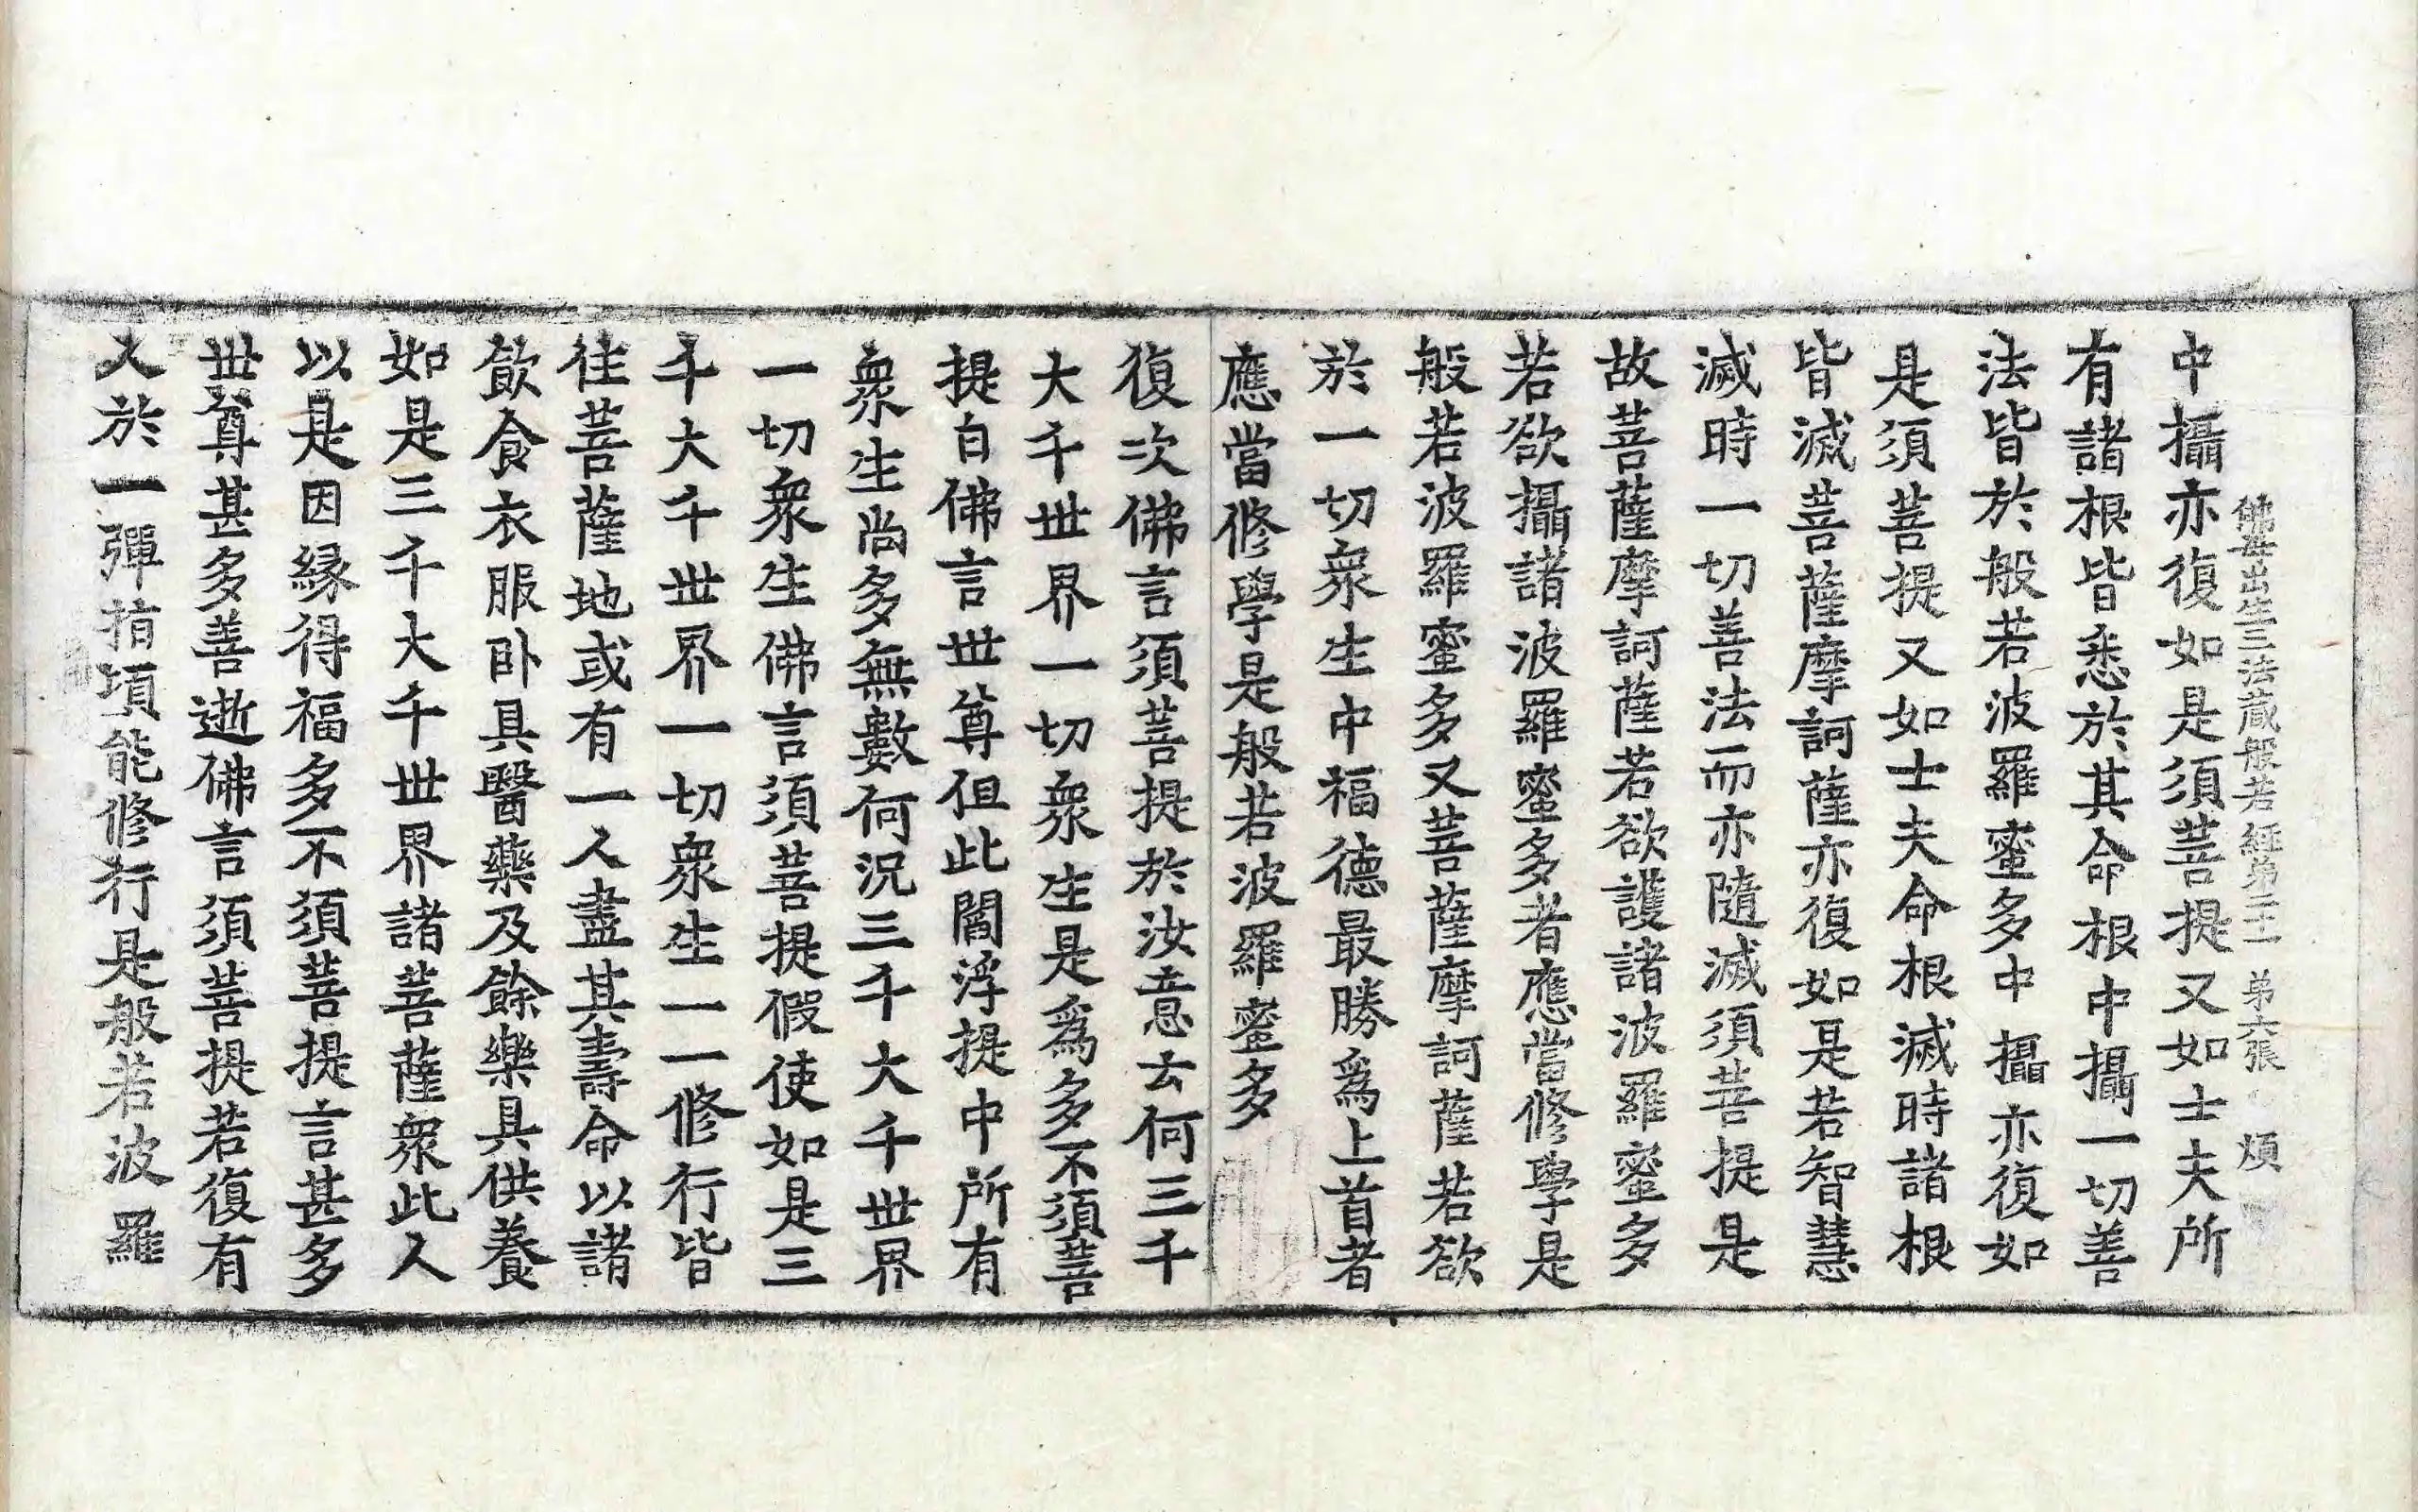 佛母出生三法藏般若經第二十一 第六張 煩
中攝亦復如是須菩提又如士夫所
有諸根皆悉於其命根中攝一切善
法皆於般若波羅蜜多中攝亦復如
是須菩提又如士夫命根滅時諸根
皆滅菩薩摩訶薩亦復如是若智慧
滅時一切善法而亦隨滅須菩提是
故菩薩摩訶薩若欲護諸波羅蜜多
若欲攝諸波羅蜜多者應當修學是
般若波羅蜜多又菩薩摩訶薩若欲
於一切衆生中福德最勝爲上首者
應當修學是般若波羅蜜多
復次佛言須菩提於汝意云何三千
大千世界一切衆生是爲多不須菩
提白佛言世尊但此閻浮提中所有
衆生尚多無數何況三千大千世界
一切衆生佛言須菩提假使如是三
千大千世界一切衆生一一修行皆
住菩薩地或有一人盡其壽命以諸
飲食衣服卧具醫藥及餘樂具供養
如是三千大千世界諸菩薩衆此人
以是因緣得福多不須菩提言甚多
世尊甚多善逝佛言須菩提若復有
人於一彈指頃能修行是般若波羅